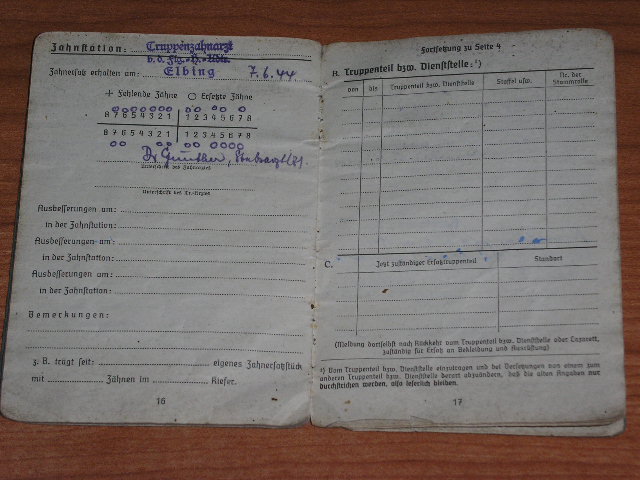 Zahnstation: Truppenzahnarzt
b. d. Flg.-H.-Kdtr.
Zahnersatz erhalten am: Elbing 7.6.44
+ Fehlende Zähne ○ Ersetzte Zähne
8 7 6 5 4 3 2 1 1 2 3 4 5 6 7 8
8 7 6 5 4 3 2 1 1 2 3 4 5 6 7 8
Dr. Günther,
Unterschrift des Zahnarztes
Unterschrift des Tr.-Arztes
Ausbesserungen am:
in der Zahnstation:
Ausbesserungen am:
in der Zahnstation:
Ausbesserungen am:
in der Zahnstation:
Bemerkungen:
z. B. trägt seit: eigenes Zahnersatzstück
mit Zähnen im Kiefer.
16
Fortsetzung zu Seite 4
A. Truppenteil bzw. Dienststelle: ²)
von bis Truppenteil bzw. Dienststelle Staffel usw. Nr. der Stammrolle
C. Jetzt zuständiger Ersatztruppenteil Standort
(Meldung dortselbst nach Rückkehr vom Truppenteil bzw. Dienststelle oder Lazarett,
zuständig für Ersatz an Bekleidung und Ausrüstung)
²) Vom Truppenteil bzw. Dienststelle einzutragen und bei Versetzungen von einem zum
anderen Truppenteil bzw. Dienststelle derart abzuändern, daß die alten Angaben nur
durchstrichen werden, also leserlich bleiben.
17